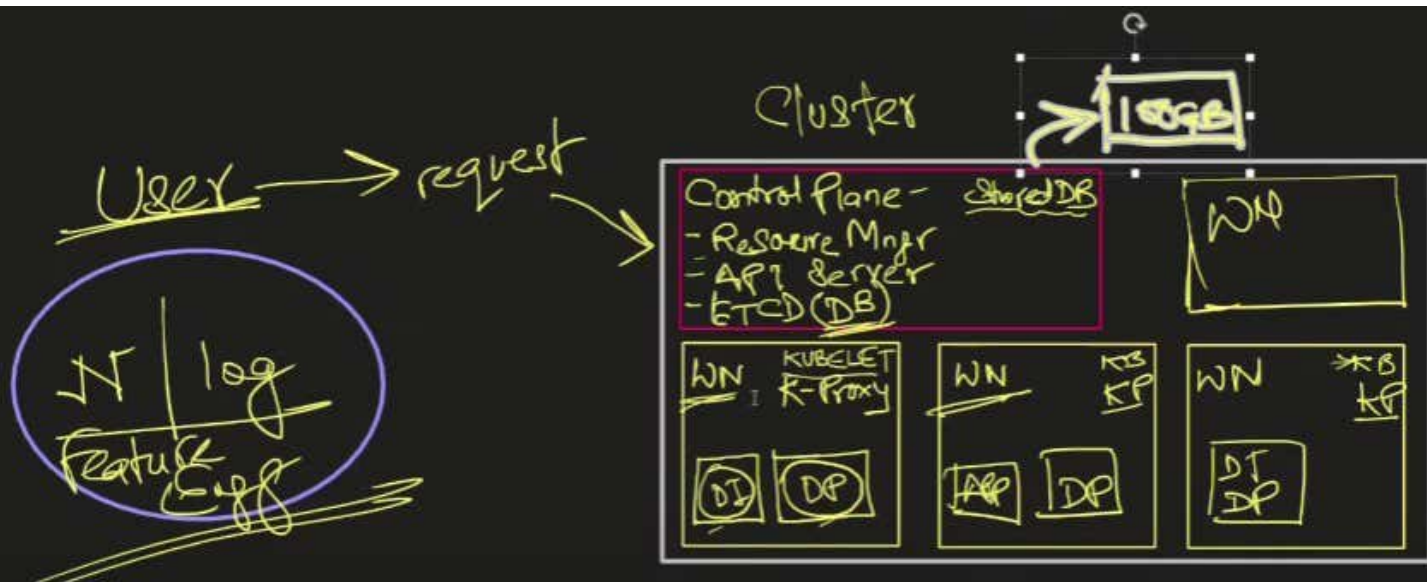 Cluster
User → request
Control Plane -
Stored DB
- Resource Mngr
- API Server
- ETCD (DB)
WN
N | log
Feature
Engg
WN KUBELET
K-Proxy
DI DP
WN KB
KP
APP DP
WN KB
KP
DI
DP